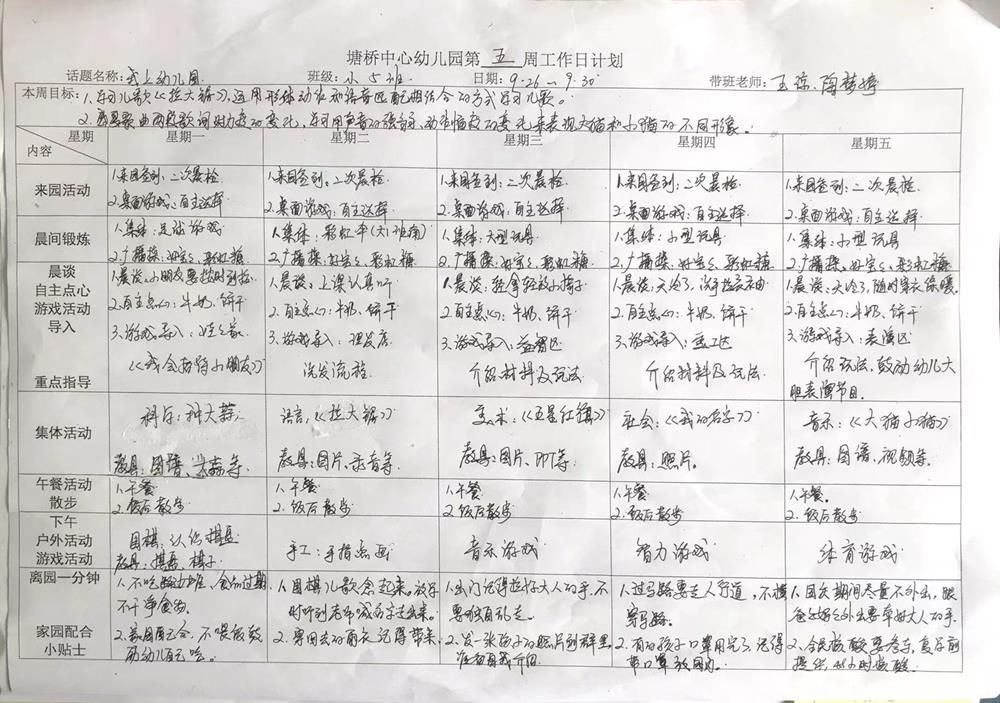 塘桥中心幼儿园第 五 周工作日计划
话题名称：我上幼儿园 班级：小5班 日期：9.26～9.30 带班老师：王琼、陶梦婷
本周目标：1.学习儿歌《拉大锯》，运用形体动作和语言匹配相结合的方式学习儿歌。
2.感受歌曲两段歌词对力度的变化，学习用声音的强弱、动作幅度的变化来表现大猫和小猫的不同形象。
星期 星期一 星期二 星期三 星期四 星期五
内容
来园活动
1.来园签到：二次晨检. 1.来园签到：二次晨检. 1.来园签到：二次晨检. 1.来园签到：二次晨检. 1.来园签到：二次晨检.
2.桌面游戏：自主选择 2.桌面游戏：自主选择 2.桌面游戏：自主选择 2.桌面游戏：自主选择 2.桌面游戏：自主选择
晨间锻炼
1.集体：足球游戏 1.集体：彩虹伞 1.集体：大型玩具 1.集体：小型玩具 1.集体：小型玩具
2.广播操：好宝宝、彩虹糖 2.广播操：好宝宝、彩虹糖 2.广播操：好宝宝、彩虹糖 2.广播操：好宝宝、彩虹糖 2.广播操：好宝宝、彩虹糖
晨谈
自主点心
游戏活动
导入
重点指导
1.晨谈：小朋友要按时到校. 1.晨谈：上课认真听 1.晨谈：轻拿轻放小椅子 1.晨谈：天冷了，洗手拉衣袖 1.晨谈：天冷了，随时穿衣保暖。
2.自主点心：牛奶、饼干 2.自主点心：牛奶、饼干 2.自主点心：牛奶、饼干 2.自主点心：牛奶、饼干 2.自主点心：牛奶、饼干
3.游戏导入：娃娃家 3.游戏导入：理发店 3.游戏导入：益智区 3.游戏导入：美工区 3.游戏导入：表演区
《我会招待小朋友》 洗发流程 介绍材料及玩法 介绍材料及玩法 介绍玩法，鼓励幼儿大
胆表演节目.
集体活动
科学：种大蒜 语言：《拉大锯》 美术：《五星红旗》 社会：《我的名字》 音乐：《大猫小猫》
教具：图谱、大蒜等 教具：图片、录音等 教具：图片、PPT等 教具：照片。 教具：图谱、视频等.
午餐活动
散步
1.午餐 1.午餐 1.午餐 1.午餐 1.午餐.
2.饭后散步 2.饭后散步 2.饭后散步 2.饭后散步 2.饭后散步
下午
户外活动
游戏活动
围棋：认识棋盘 手工：手指点画 音乐游戏 智力游戏 体育游戏
教具：棋盘、棋子
离园一分钟
1.不吃陌生、食物过期 1.围棋儿歌念起来， 1.出门记得拉好大人的手，不 1.过马路要走人行道，不横 1.国庆期间尽量不外出，跟
不干净食物. 时听到老师喊名字走出来. 要独自乱走. 穿马路. 爸爸妈妈外出要牵好大人的手.
家园配合
小贴士
2.家园配合，不喂饭鼓 2.带回去的雨衣记得带来. 2.发一张孩子的照片到群里 2.有的孩子口罩用完了，记得 2.全员核酸要参与，复学前
励幼儿自己吃. 准备自我介绍 带口罩放园内. 提供48小时核酸.